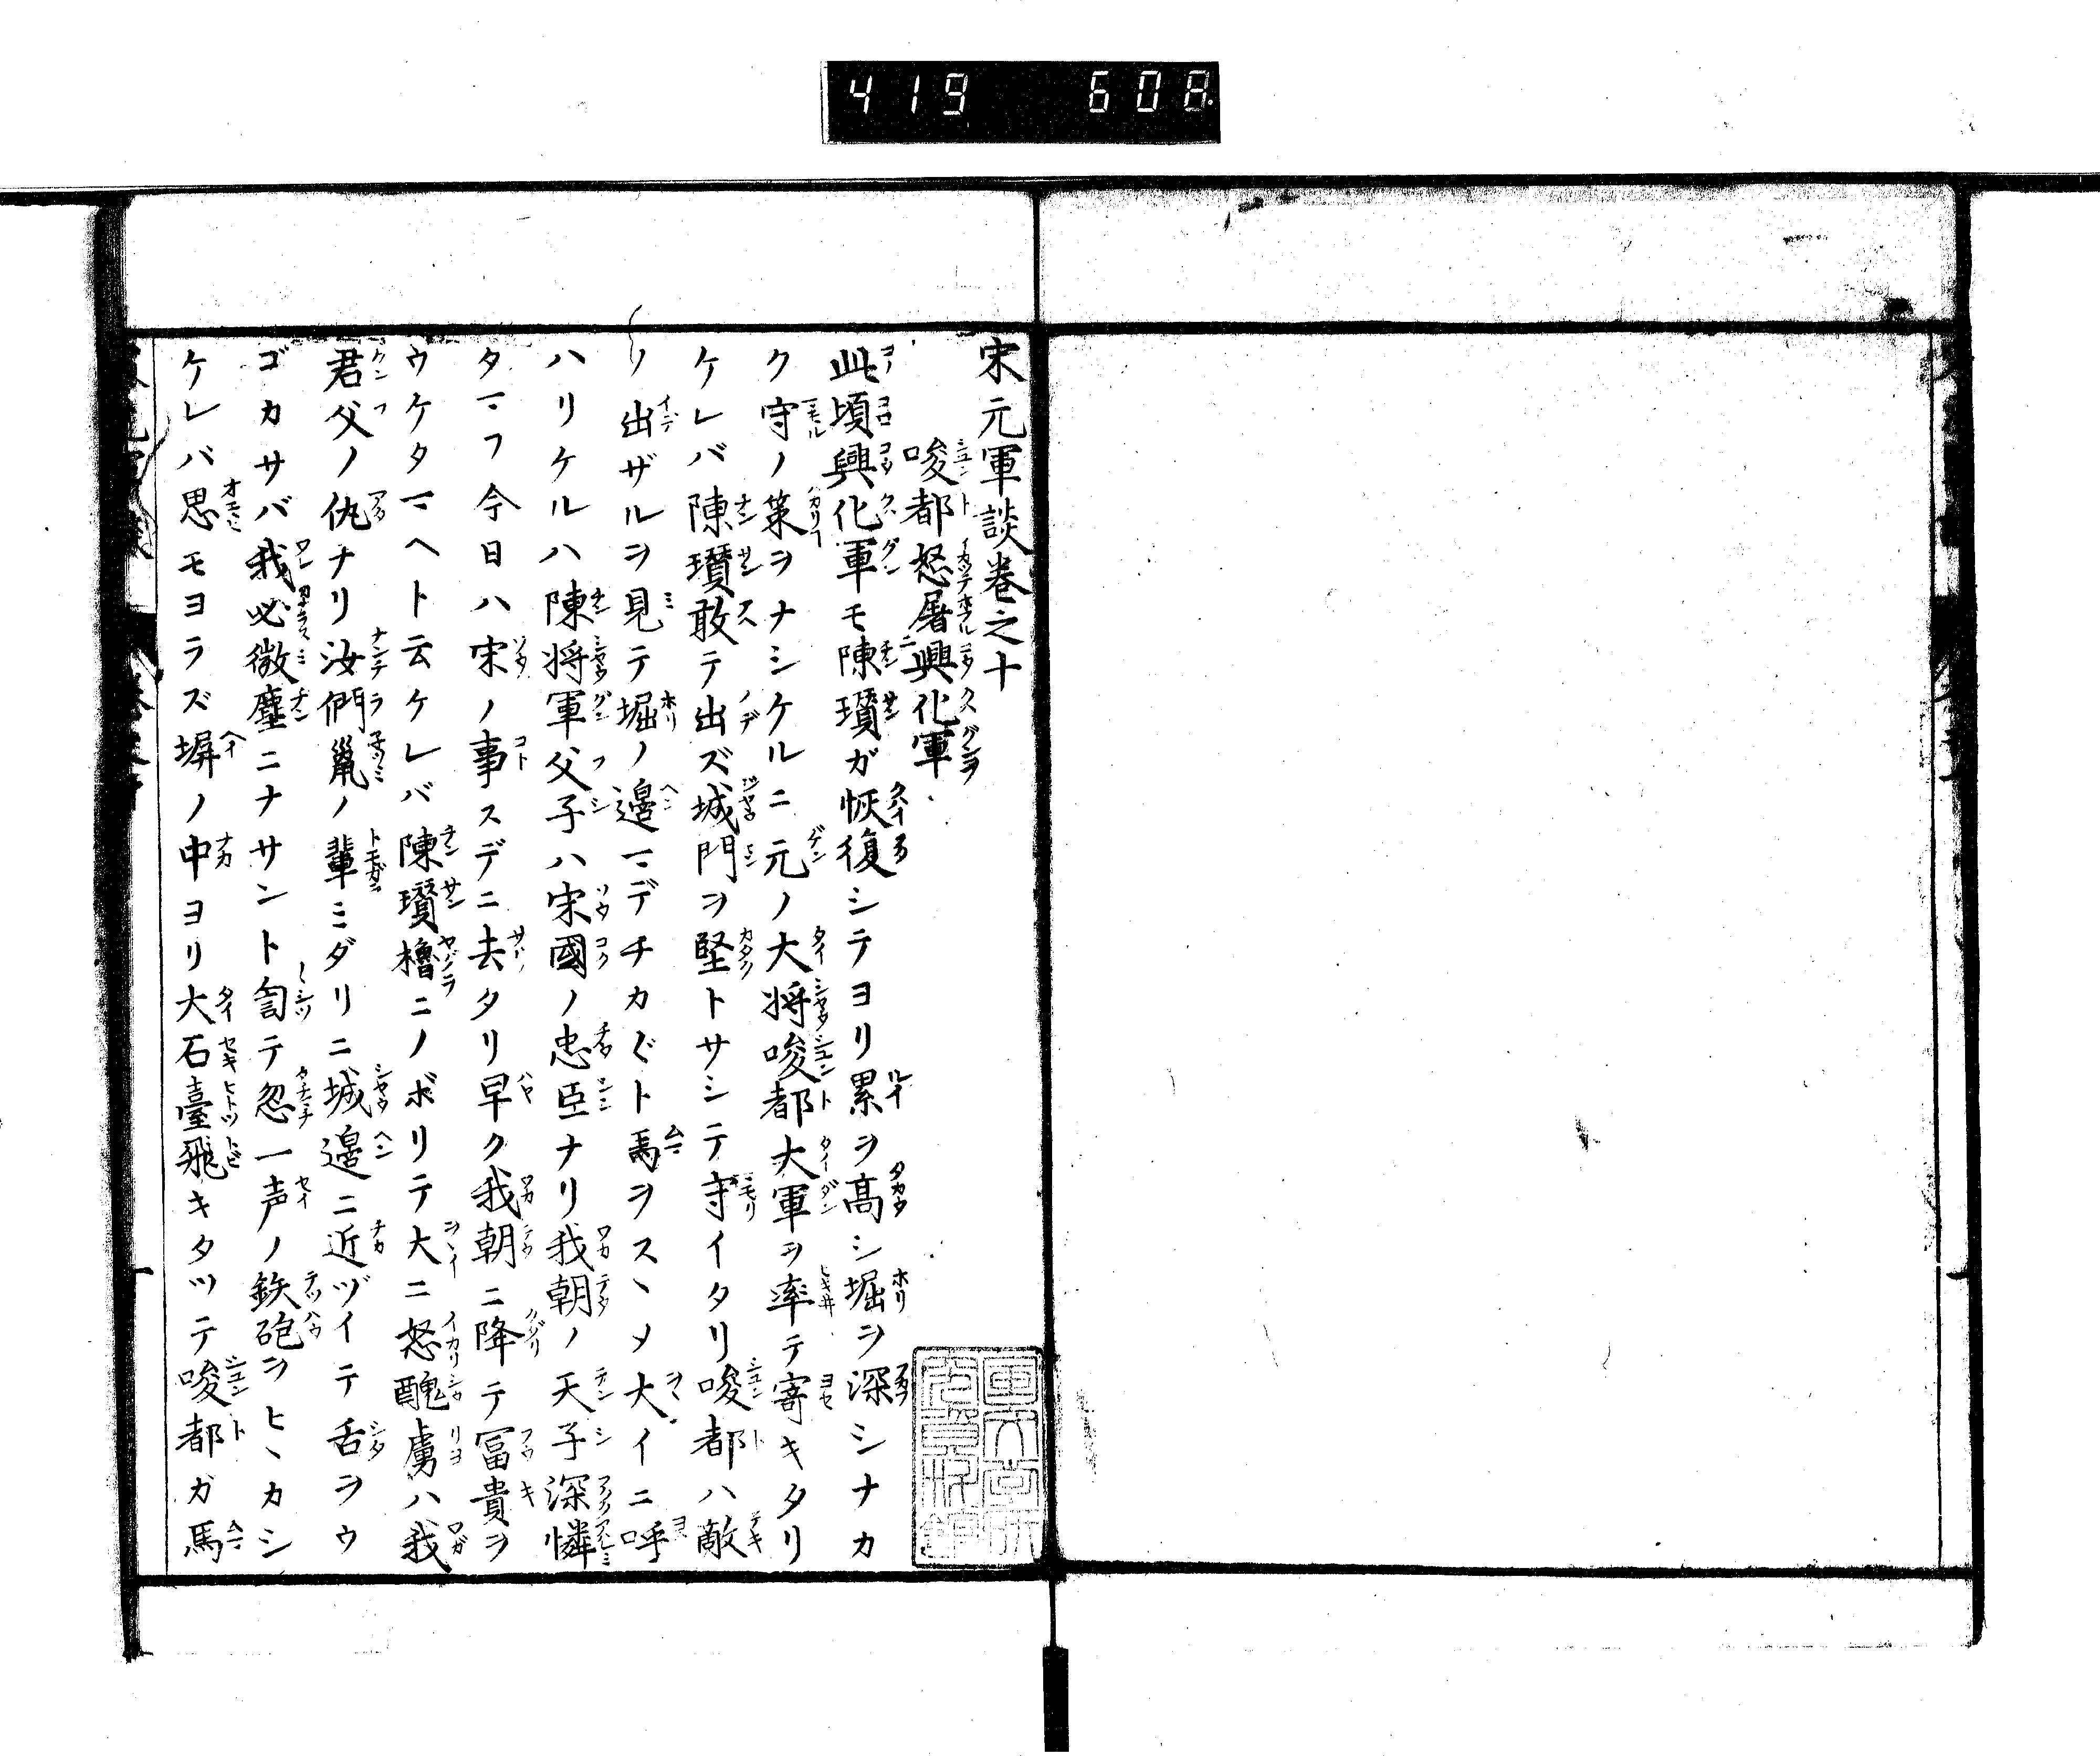 419 608
宋元軍談巻之十
唆都怒屠興化軍
此頃興化軍モ陳瓚ガ恢復シテヨリ累ヲ髙シ堀ヲ深シナカ
ク守ノ策ヲナシケルニ元ノ大将唆都大軍ヲ率テ寄キタリ
ケレバ陳瓚敢テ出ズ城門ヲ堅トサシテ守イタリ唆都ハ敵
ノ出ザルヲ見テ堀ノ邉マデチカぐト馬ヲスヽメ大イニ呼
ハリケルハ陳将軍父子ハ宋國ノ忠臣ナリ我朝ノ天子深憐
タマフ今日ハ宋ノ事スデニ去タリ早ク我朝ニ降テ冨貴ヲ
ウケタマヘト云ケレバ陳瓚櫓ニノボリテ大ニ怒醜虜ハ我
君父ノ仇ナリ汝們鼠ノ輩ミダリニ城邉ニ近ヅイテ舌ヲウ
ゴカサバ我必微塵ニナサント訇テ忽一声ノ鉄砲ヲヒヽカシ
ケレバ思モヨラズ塀ノ中ヨリ大石臺飛キタツテ唆都ガ馬